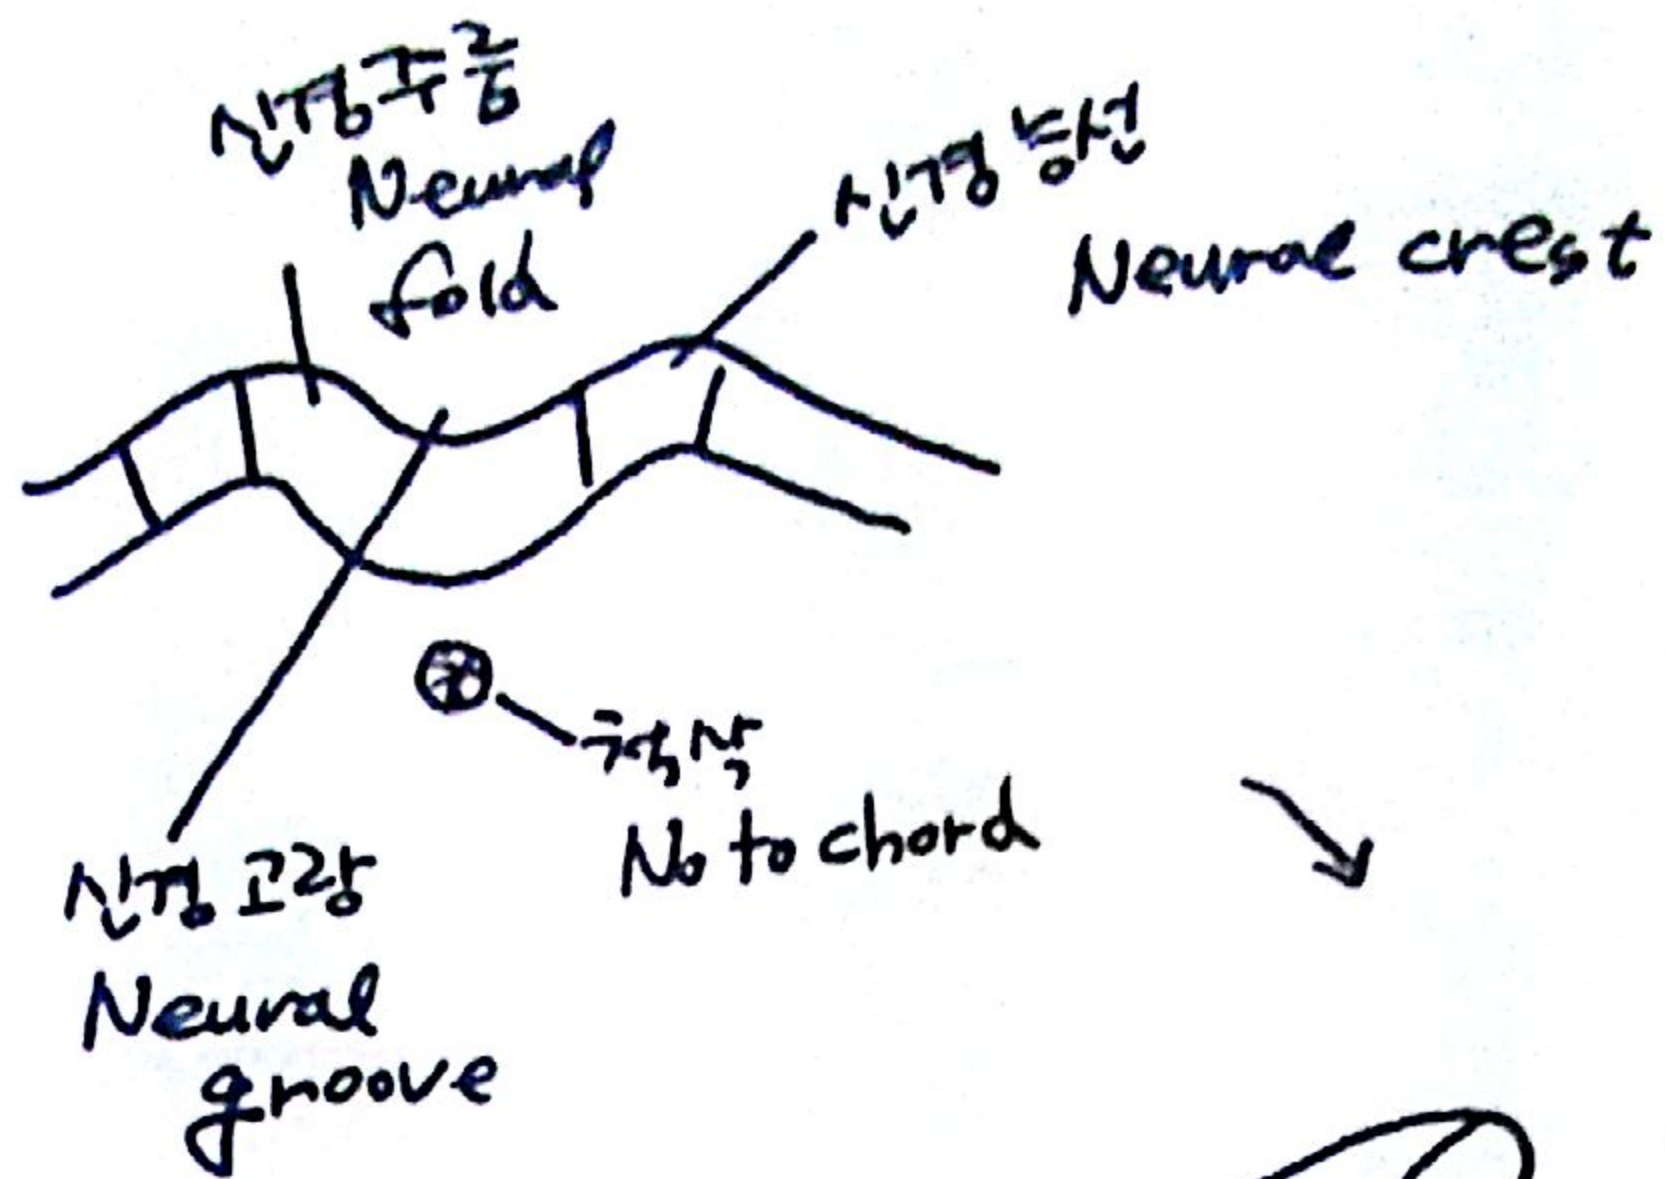 신경주름
Neural
fold
신경능선
Neural crest
척삭
No to chord
신경 고랑
Neural
groove